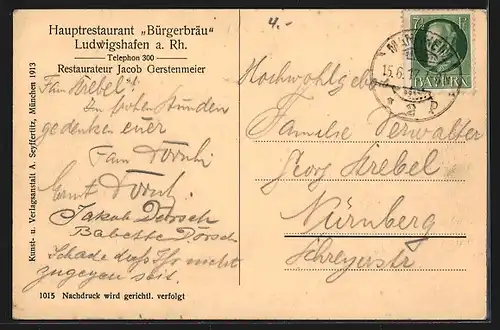 Hauptrestaurant „Bürgerbräu"
Ludwigshafen a. Rh.
Telephon 300
Restaurateur Jacob Gerstenmeier
Fam Krebel!
In frohen Stunden
gedenken euer
Fam Dorsch
Ernst Dorsch
Jakob Dorsch
Babette Dorsch
Schade daß Ihr nicht
zugegen seit.
1015 Nachdruck wird gerichtl. verfolgt
Kunst- u. Verlagsanstalt A. Seyfferlitz, München 1913
4.-
7½
BAYERN
15.6.17
Hochwohlgeb
Familie Verwalter
Georg Krebel
Nürnberg
Schreyerstr